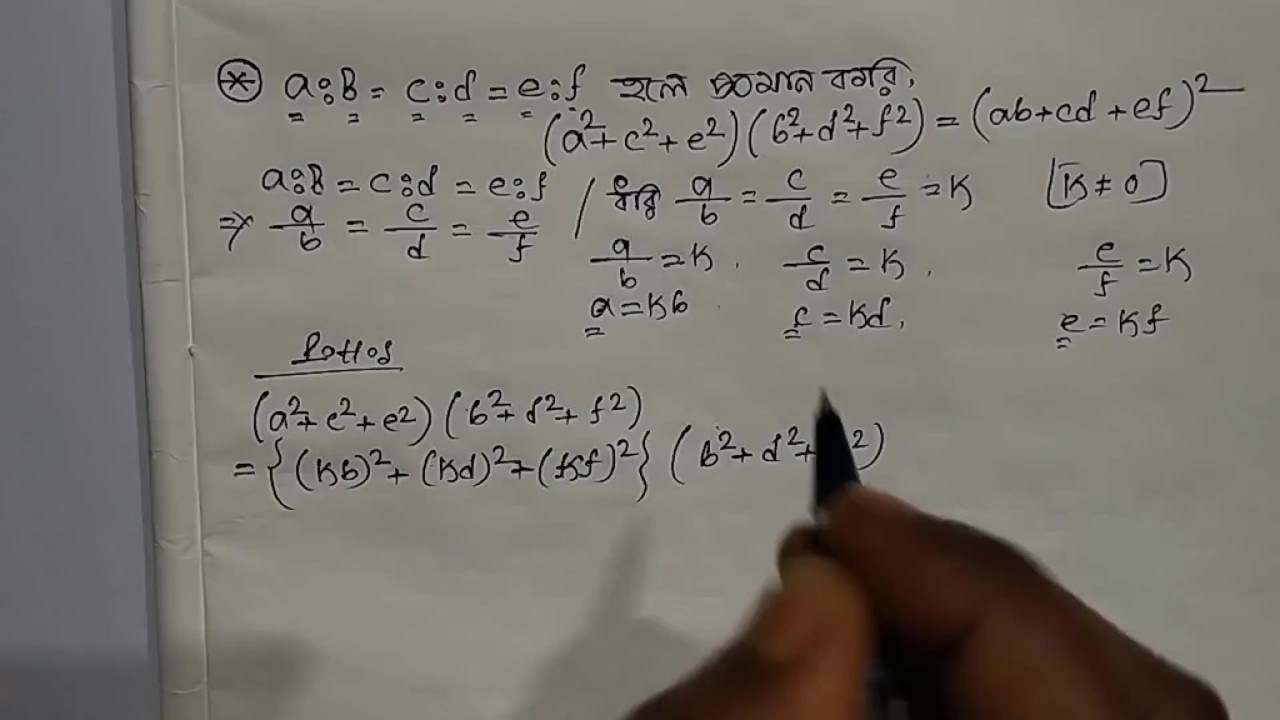 * a:B = c:d = e:f হলে প্রমান করি,
(a²+c²+e²)(b²+d²+f²) = (ab+cd+ef)²
a:B = c:d = e:f / ধরি a/b = c/d = e/f = K [K ≠ 0]
⇒ a/b = c/d = e/f
a/b = K . c/d = K . e/f = K
a = Kb c = Kd, e = Kf
(a²+c²+e²)(b²+d²+f²)
= {(Kb)²+(Kd)²+(Kf)²} (b²+d²+ ²)